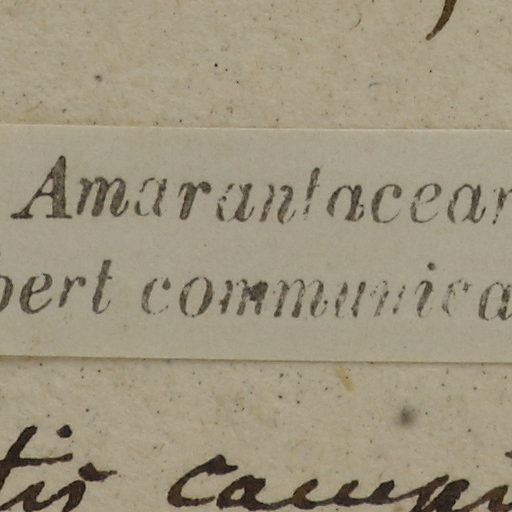 Amarantacear
bert communica
tis campi